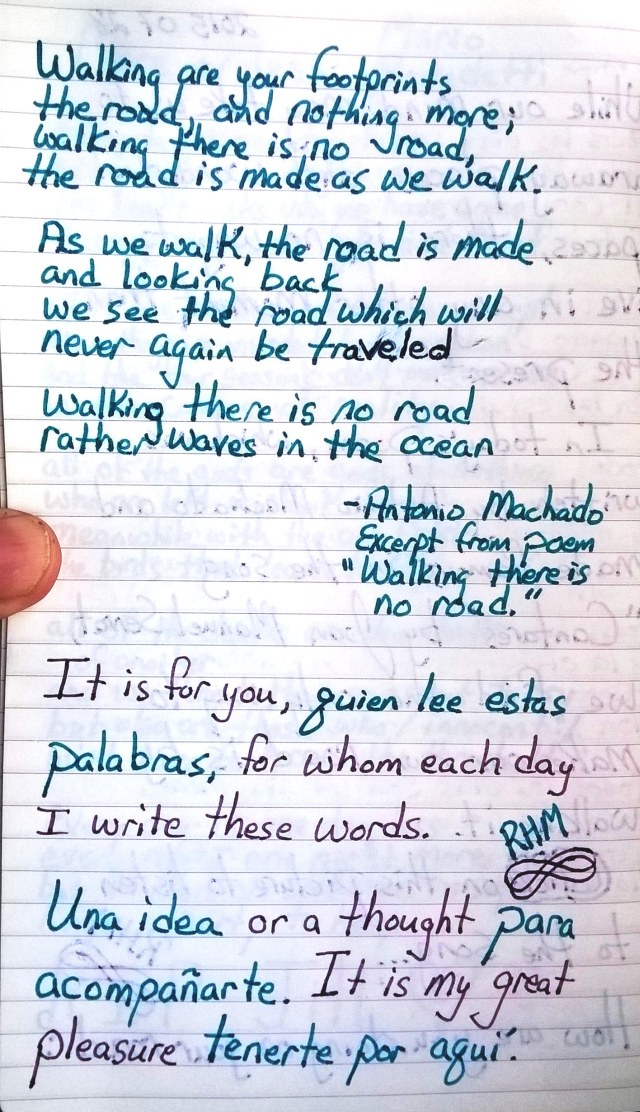 Walking are your footprints
the road, and nothing more;
walking there is no road,
the road is made as we walk.
As we walk, the road is made
and looking back
we see the road which will
never again be traveled
Walking there is no road
rather waves in the ocean
- Antonio Machado
Excerpt from poem
"Walking there is
no road."
It is for you, quien lee estas
palabras, for whom each day
I write these words.
RHM
Una idea or a thought para
acompañarte. It is my great
pleasure tenerte por aquí.